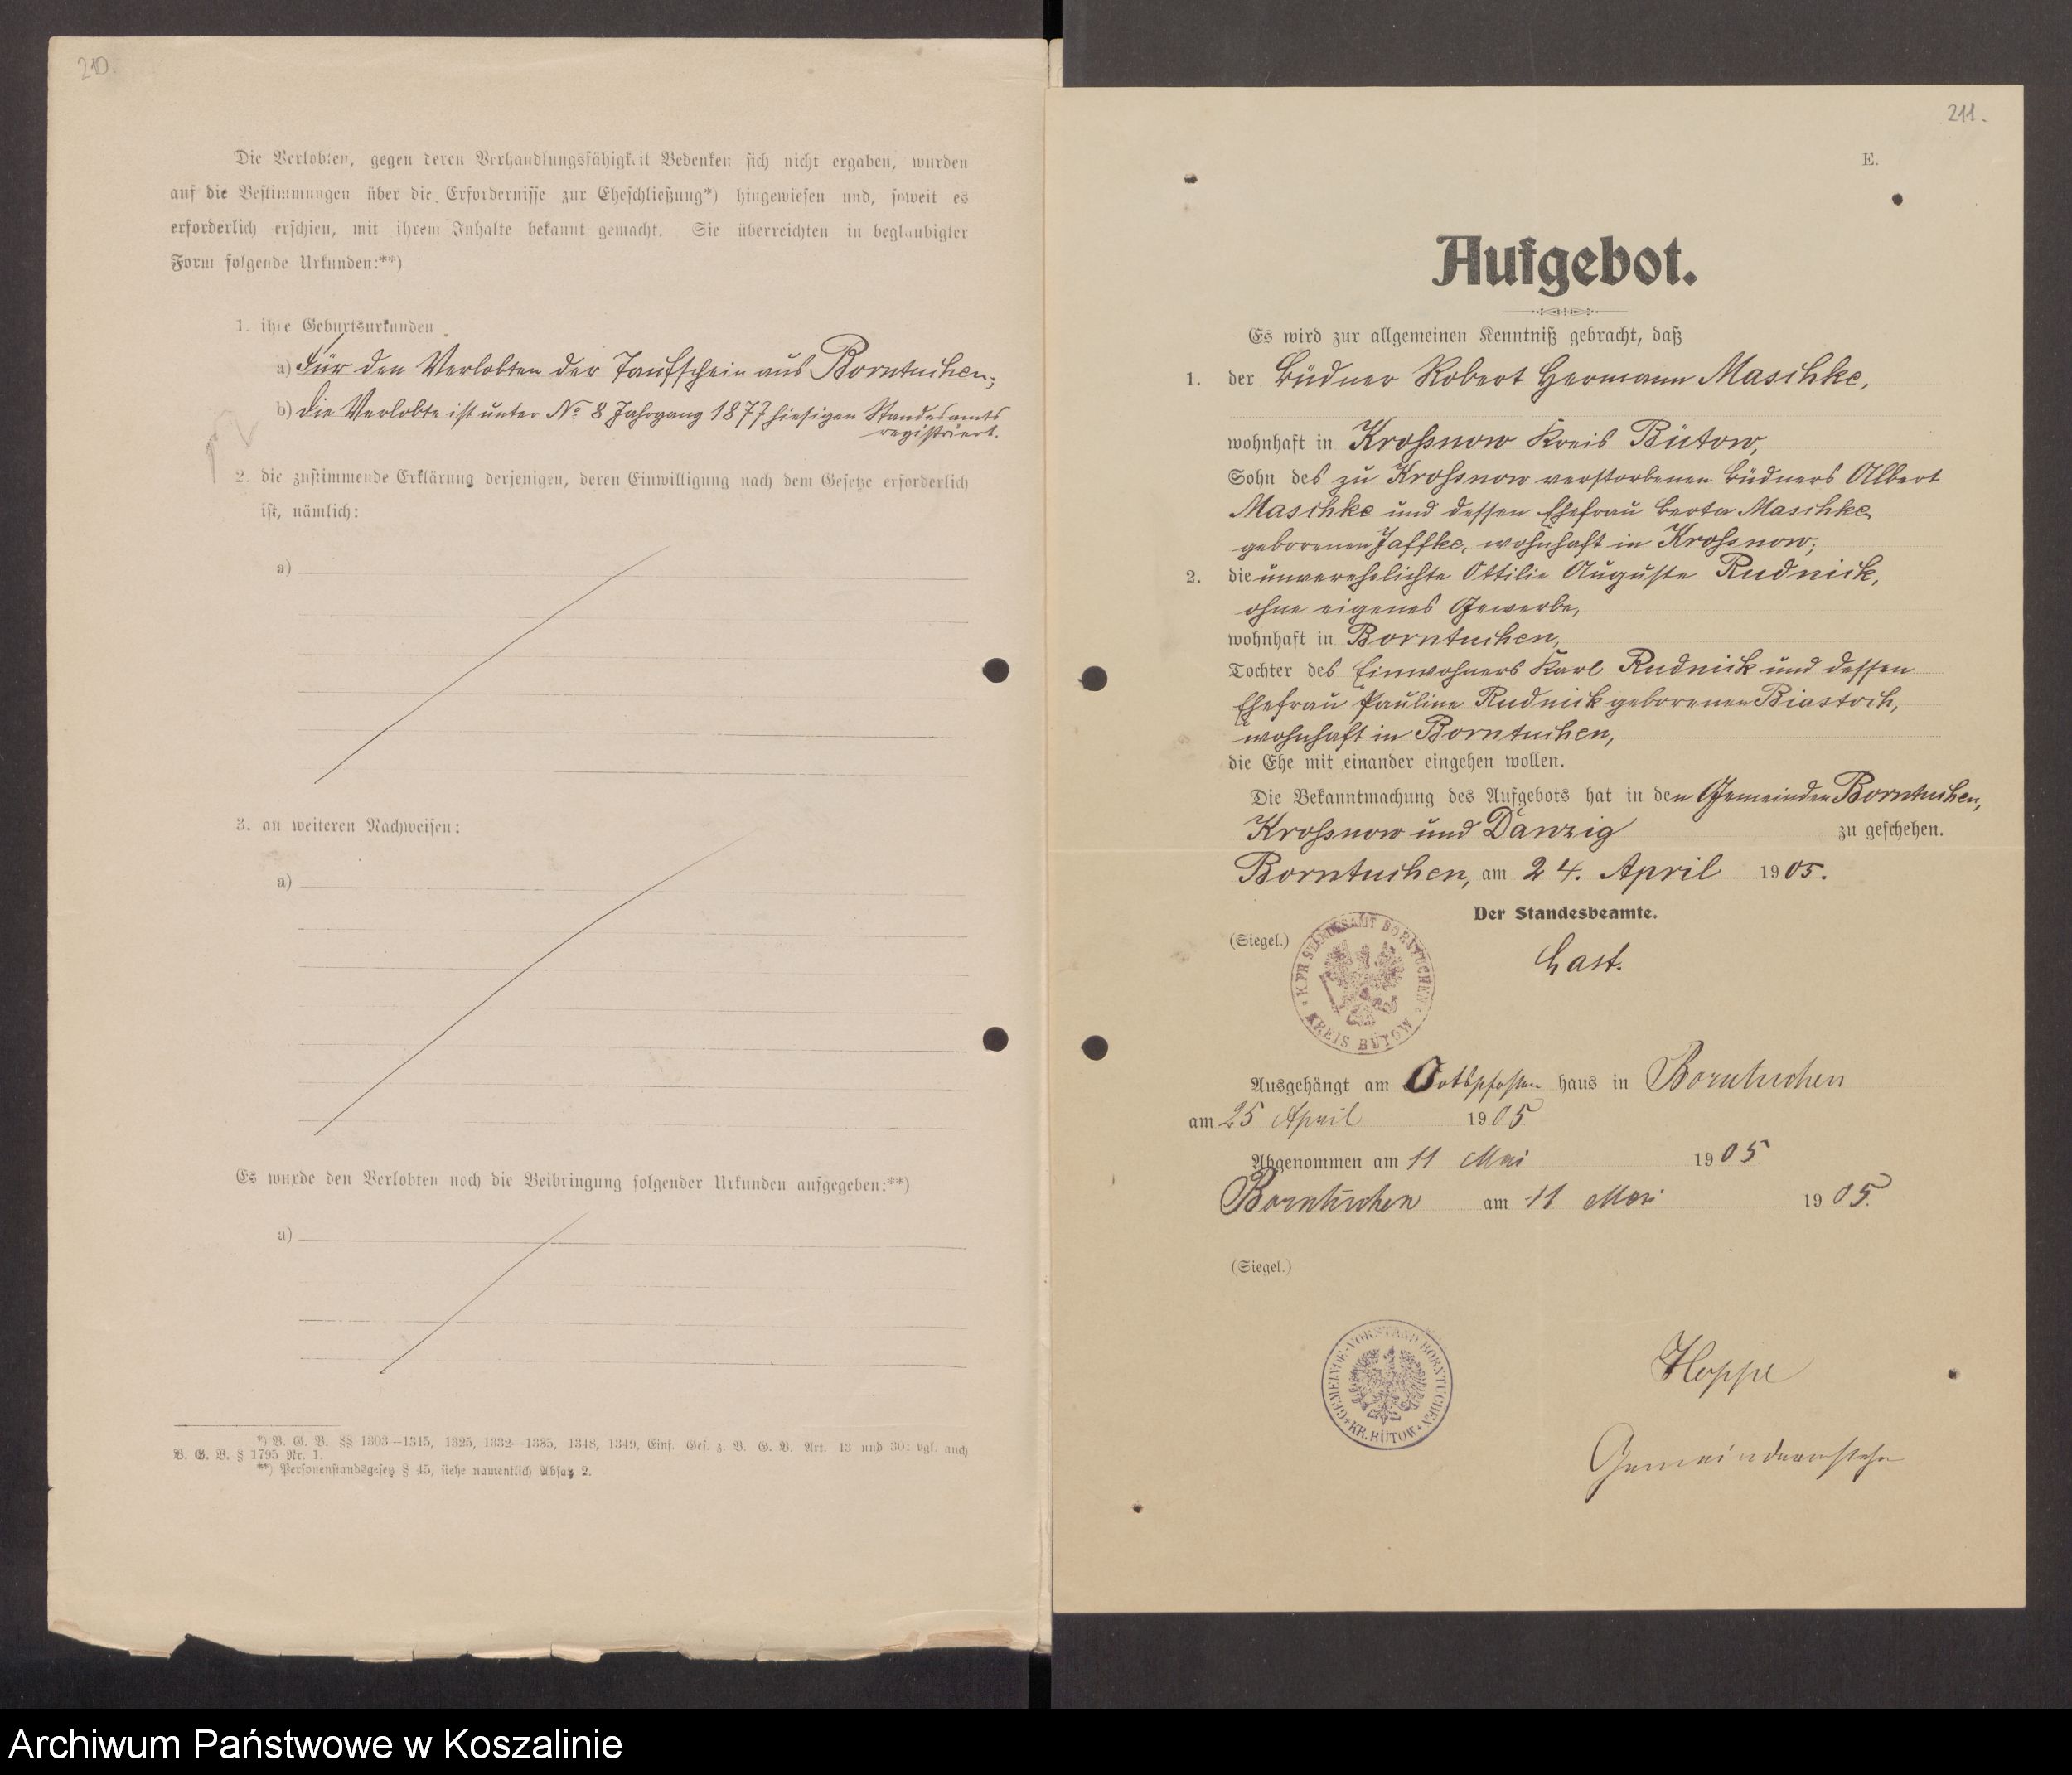 210.
Die Verlobten, gegen deren Verhandlungsfähigkeit Bedenken sich nicht ergaben, wurden
auf die Bestimmungen über die Erfordernisse zur Eheschließung*) hingewiesen und, soweit es
erforderlich erschien, mit ihrem Inhalte bekannt gemacht. Sie überreichten in beglaubigter
Form folgende Urkunden:**)
1. ihre Geburtsurkunden
a) Für den Verlobten der Taufschein aus Borntuchen;
b) die Verlobte ist unter No 8 Jahrgang 1877 hiesigen Standesamts
registriert.
2. die zustimmende Erklärung derjenigen, deren Einwilligung nach dem Gesetze erforderlich
ist, nämlich:
a)
3. an weiteren Nachweisen:
a)
Es wurde den Verlobten noch die Beibringung folgender Urkunden aufgegeben:**)
a)
*) B. G. B. §§ 1303—1315, 1325, 1332—1335, 1348, 1349, Einf. Ges. z. B. G. B. Art. 13 und 30; vgl. auch
B. G. B. § 1795 Nr. 1.
**) Personenstandsgesetz § 45, siehe namentlich Absatz 2.
211.
E.
Aufgebot.
Es wird zur allgemeinen Kenntniß gebracht, daß
1. der Büdner Robert Hermann Maschke,
wohnhaft in Kroßnow Kreis Bütow,
Sohn des zu Kroßnow verstorbenen Büdners Albert
Maschke und dessen Ehefrau Berta Maschke
geborenen Jaffke, wohnhaft in Kroßnow;
2. die unverehelichte Ottilie Auguste Rudnick,
ohne eigenes Gewerbe,
wohnhaft in Borntuchen,
Tochter des Einwohners Karl Rudnick und dessen
Ehefrau Pauline Rudnick geborenen Biastoch,
wohnhaft in Borntuchen,
die Ehe mit einander eingehen wollen.
Die Bekanntmachung des Aufgebots hat in den Gemeinden Borntuchen,
Kroßnow und Danzig zu geschehen.
Borntuchen, am 24. April 1905.
Der Standesbeamte.
(Siegel.)
KPR STANDESAMT BORNTUCHEN
KREIS BÜTOW
Last.
Ausgehängt am haus in Borntuchen
am 25 April 1905
Abgenommen am 11 Mai 1905
Borntuchen am 11 Mai 1905.
(Siegel.)
GEMEINDE-VORSTAND BORNTUCHEN
KR. BÜTOW
Hoppe
Gemeindevorsteher
Archiwum Państwowe w Koszalinie